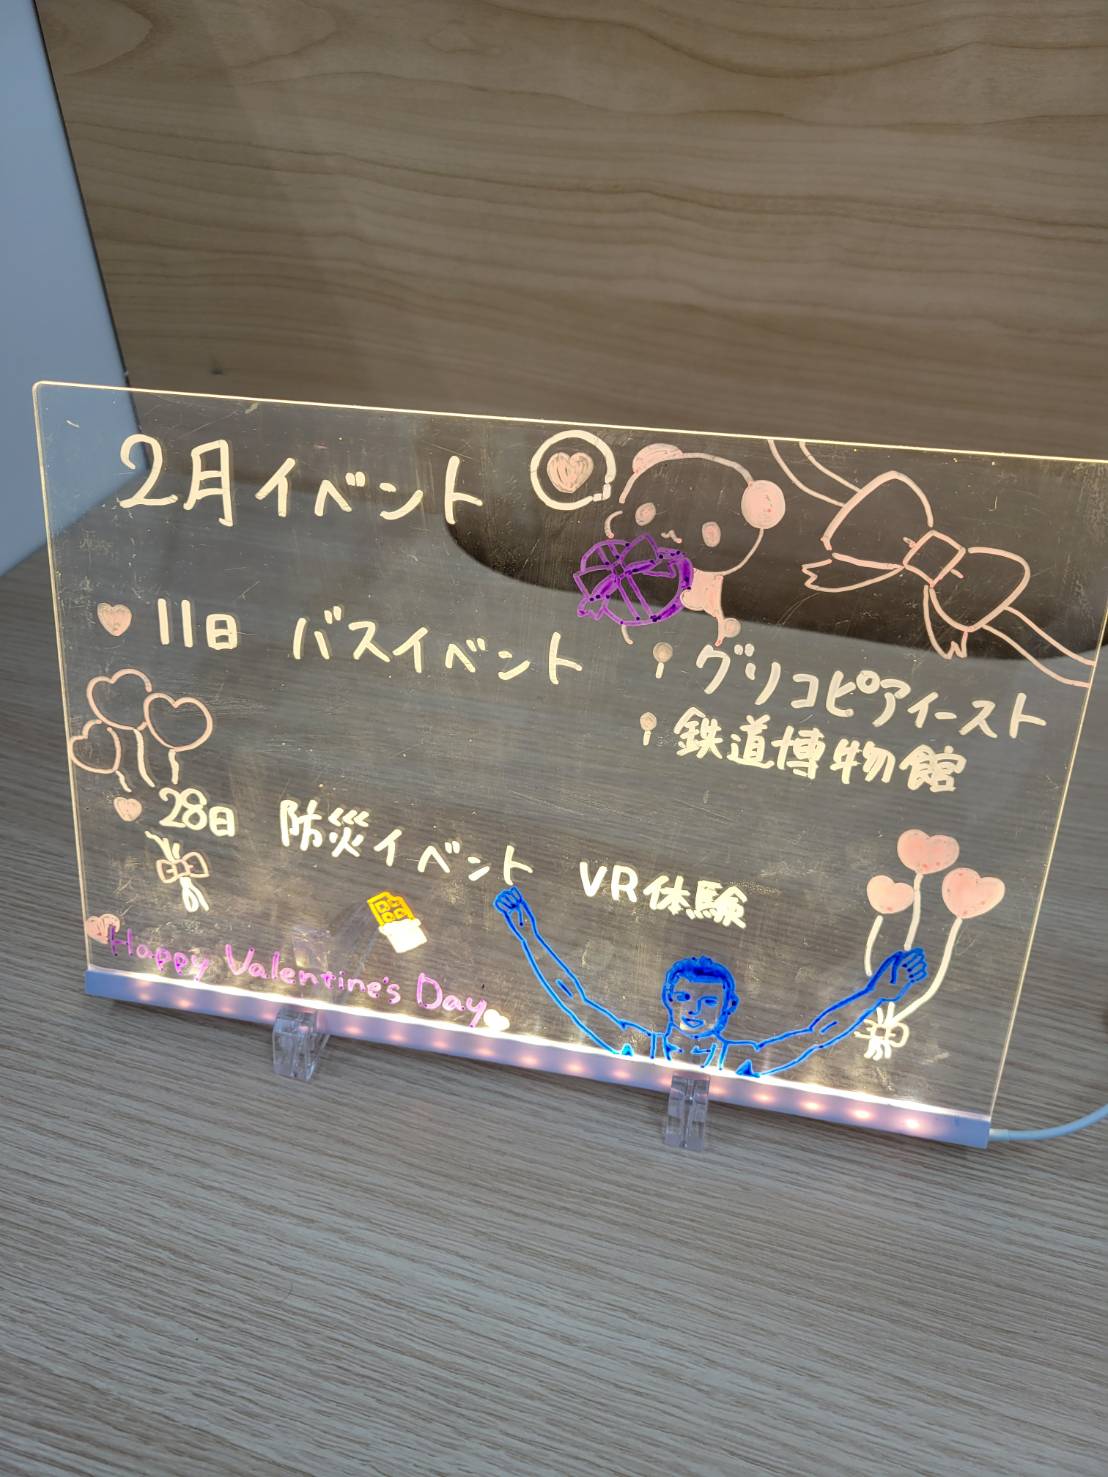 2月イベント
11日 バスイベント
グリコピアイースト
鉄道博物館
28日 防災イベント VR体験
Happy Valentine's Day